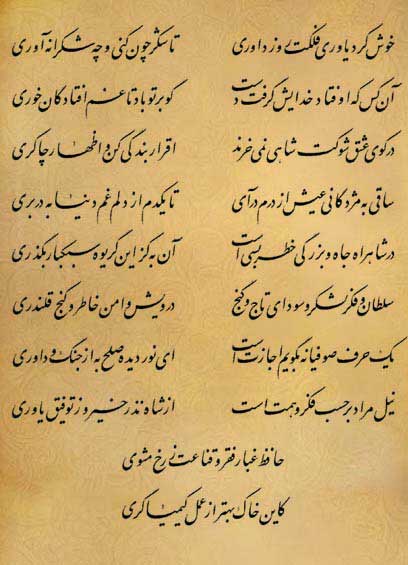 خوش کرد یاوری فلکت روز داوری تا شکر چون کنی و چه شکرانه آوری
آن کس که اوفتاد خدایش گرفت دست گو بر تو باد تا غم افتادگان خوری
در کوی عشق شوکت شاهی نمی خرند اقرار بندگی کن و اظهار چاکری
ساقی به مژدگانی عیش از درم درآی تا یکدم از دلم غم دنیا به در بری
در شاهراه جاه و بزرگی خطر بسی است آن به کز این گریوه سبکبار بگذری
سلطان و فکر لشکر و سودای تاج و گنج درویش و امن خاطر و کنج قلندری
یک حرف صوفیانه بگویم اجازت است ای نور دیده صلح به از جنگ و داوری
نیل مراد بر حسب فکر و همت است از شاه نذر خیر و ز توفیق یاوری
حافظ غبار فقر و قناعت ز رخ مشوی
کاین خاک بهتر از عمل کیمیاگری